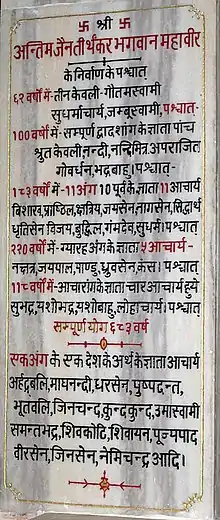 卐 श्री 卐
अन्तिम जैनतीर्थंकर भगवान महावीर
के निर्वाण के पश्चात्
६२ वर्षों में - तीन केवली - गौतमस्वामी
सुधर्माचार्य, जम्बूस्वामी, पश्चात् -
100 वर्षों में - सम्पूर्ण द्वादशांग के ज्ञाता पांच
श्रुत केवली, नन्दी, नन्दिमित्र, अपराजित
गोवर्धन, भद्रबाहु । पश्चात् -
1८३ वर्षों में - 11 अंग 10 पूर्व के ज्ञाता 11 आचार्य
विशाख, प्राष्ठिल, क्षत्रिय, जयसेन, नागसेन, सिद्धार्थ
धृतिसेन विजय, बुद्धिल, गंगदेव, सुधर्म । पश्चात्
२२० वर्षों में - ग्यारह अंग के ज्ञाता ५ आचार्य -
नक्षत्र, जयपाल, पाण्डु, ध्रुवसेन, कंस । पश्चात्
11८ वर्षों में - आचारांग के ज्ञाता चार आचार्य हुये
सुभद्र, यशोभद्र, यशोबाहु, लोहाचार्य । पश्चात्
सम्पूर्ण योग ६८३ वर्ष
एक अंग के एक देश के अर्थ के ज्ञाता आचार्य
अर्हद्बलि, माघनन्दी, धरसेन, पुष्पदन्त,
भूतवलि, जिनचन्द, कुन्दकुन्द, उमास्वामी
समन्तभद्र, शिवकोटि, शिवायन, पूज्यपाद
वीरसेन, जिनसेन, नेमिचन्द्र आदि ।